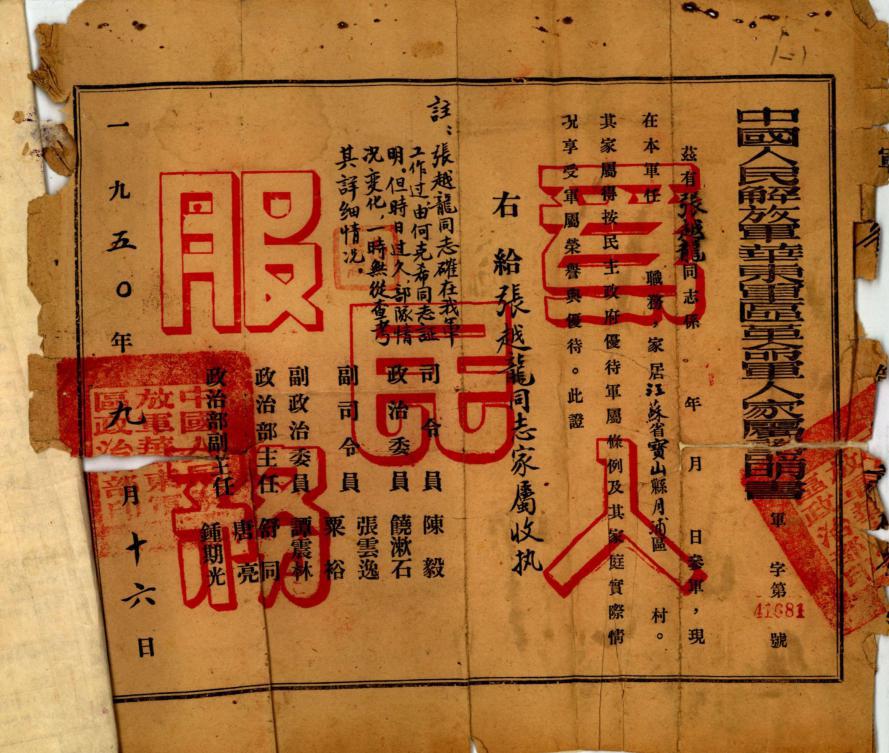 中國人民解放軍華東軍區革命軍人家屬證明書
軍字第41681號
茲有張越龍同志係 年 月 日參軍，現
在本軍任 職務，家居江蘇省寶山縣月浦區 村。
其家屬得按民主政府優待軍屬條例及其家庭實際情
況享受軍屬榮譽與優待。此證
右給張越龍同志家屬收执
註：張越龍同志確在我軍
工作过，由何克希同志証
明。但時日过久，部隊情
况变化，一時無從查考
其詳细情況。
司令員 陳毅
政治委員 饒漱石
副司令員 張雲逸
粟裕
副政治委員 譚震林
政治部主任 舒同
政治部副主任 唐亮
鍾期光
一九五〇年九月十六日
為人民服務